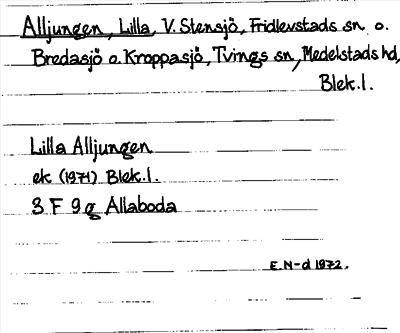 Alljungen, Lilla, V. Stensjö, Fridlevstads sn o.
Bredasjö o. Kroppasjö, Tvings sn, Medelstads hd,
Blek. l.
Lilla Alljungen
ek (1971) Blek. l.
3 F 9 g Allaboda
E. N-d 1972.